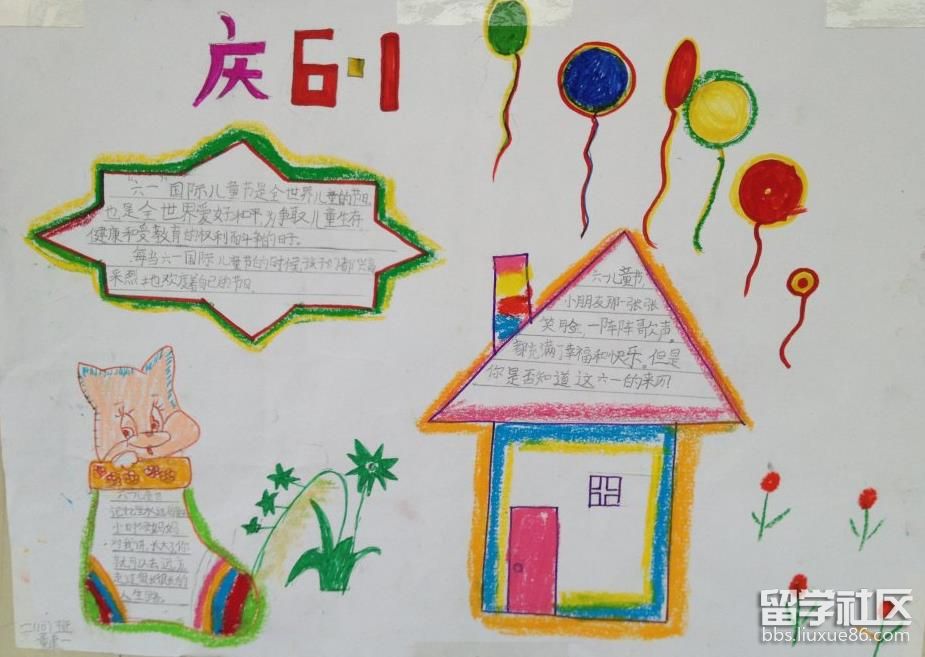 庆6·1
六一国际儿童节是全世界儿童的节日,
也是全世界爱好和平为争取儿童生存
健康和受教育的权利而斗争的日子。
每当六一国际儿童节的时候,孩子们都兴高
采烈地欢度着自己的节日。
六一儿童节,
小朋友那一张张
笑脸,一阵阵歌声,
都充满了幸福和快乐。但是
你是否知道这六一的来历
六一儿童节
小时候妈妈
对我讲,长大了你
就可以去远方
走过很长很长的
人生路。
二(10)班
留学社区
bbs.liuxue86.com